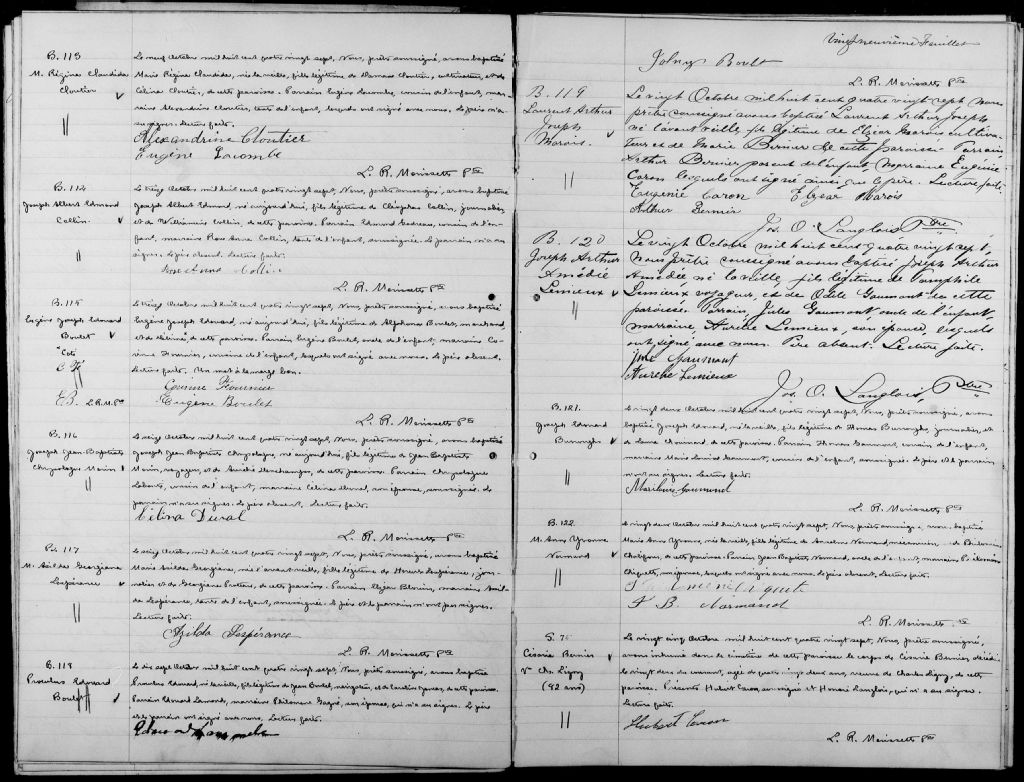 B. 113
M. Régina Claudida
Cloutier
Le neuf Octobre mil huit cent quatre vingt sept, Nous, prêtre soussigné, avons baptisé
Marie Régina Claudida, née la veille, fille légitime de Damase Cloutier, cultivateur, et de
Célina Cloutier, de cette paroisse. Parrain Eugène Lacombe, cousin de l'enfant, mar-
raine Alexandrine Cloutier, tante de l'enfant, lesquels ont signé avec nous. Le père n'a su
signer. Lecture faite.
Alexandrine Cloutier
Eugène Lacombe
L. R. Morissette Ptre
B. 114
Joseph Albert Edmond
Collin
Le treize Octobre mil huit cent quatre vingt sept, Nous, prêtre soussigné, avons baptisé
Joseph Albert Edmond, né aujourd'hui, fils légitime de Cléophas Collin, journalier,
et de Collin, de cette paroisse. Parrain Edmond, cousin de l'en-
fant, marraine Rose Anna Collin, tante de l'enfant, soussignée. Le parrain n'a su
signer. Le père absent. Lecture faite.
Rose Anna Collin
L. R. Morissette Ptre
B. 115
Eugène Joseph Edouard
Boulet
Coté
E. B. L.R.M. Ptre
Le Octobre mil huit cent quatre vingt sept, Nous, prêtre soussigné, avons baptisé
Eugène Joseph Edouard, né aujourd'hui, fils légitime de Alphonse Boulet, marchand,
et de, de cette paroisse. Parrain Eugène Boulet, oncle de l'enfant, marraine Co-
rinne Fournier, cousine de l'enfant, lesquels ont signé avec nous. Le père absent.
Lecture faite. Un mot à la marge bon.
Corinne Fournier
Eugène Boulet
L. R. Morissette Ptre
B. 116
Joseph Jean-Baptiste
Chrysologue Morin
Le seize Octobre mil huit cent quatre vingt sept, Nous, prêtre soussigné, avons baptisé
Joseph Jean Baptiste Chrysologue, né aujourd'hui, fils légitime de Jean-Baptiste
Morin, voyageur, et de Deschamps, de cette paroisse. Parrain Chrysologue
cousin de l'enfant, marraine Célina Duval, son épouse, soussignée. Le
parrain n'a su signer. Le père absent. Lecture faite.
Célina Duval
L. R. Morissette Ptre
B. 117
M. Azilda Georgiana
Lespérance
Le seize Octobre mil huit cent quatre vingt sept, Nous, prêtre soussigné, avons baptisé
Marie Azilda Georgiana, née l'avant veille, fille légitime de Honoré Lespérance, jour-
nalier et de Georgiana, de cette paroisse. Parrain Elzéar Blouin, marraine Azil-
da Lespérance, tante de l'enfant, soussignée. Le père et le parrain n'ont pu signer.
Lecture faite.
Azilda Lespérance
L. R. Morissette Ptre
B. 118
Edouard
Boulet
Le dix sept Octobre mil huit cent quatre vingt sept, Nous, prêtre soussigné, avons baptisé
Edouard, né la veille, fils légitime de Jean Boulet, navigateur, et de Caroline, de cette paroisse.
Parrain Edouard, marraine Philomène Gagné, son épouse, qui n'a su signer. Le père
et le parrain ont signé avec nous. Lecture faite.
Edouard
Vingt neuvième Feuillet
Johny Boulet
L. R. Morissette Ptre
B. 119
Laurent Arthur
Joseph
Marois.
Le vingt Octobre mil huit cent quatre vingt sept nous
prêtre soussigné avons baptisé Laurent Arthur Joseph
né l'avant veille, fils légitime de Elzear Marois cultiva-
teur et de Marie Bernier de cette paroisse. Parrain
Arthur Bernier parent de l'enfant, marraine Eugénie
Caron lesquels ont signé ainsi que le père. Lecture faite.
Eugenie Caron Elzear Marois
Arthur Bernier
Jos. O. Langlois Ptre
B. 120
Joseph Arthur
Amédée
Lemieux
Le vingt Octobre mil huit cent quatre vingt sept,
nous prêtre soussigné avons baptisé Joseph Arthur
Amédée né la veille, fils légitime de Pamphile
Lemieux voyageur, et de Odile Gaumont de cette
paroisse. Parrain Jules Gaumont oncle de l'enfant
marraine, Aurélie Lemieux, son épouse, lesquels
ont signé avec nous. Père absent. Lecture faite.
Jules Gaumont
Aurelie Lemieux
Jos. O. Langlois, Ptre
B. 121.
Joseph Edouard
Burroughs
Le vingt deux Octobre mil huit cent quatre vingt sept, Nous, prêtre soussigné, avons
baptisé Joseph Edouard, né la veille, fils légitime de Thomas Burroughs, journalier, et
de Chouinard, de cette paroisse. Parrain Thomas Gaumont, cousin de l'enfant,
marraine Marie Louise Gaumont, cousine de l'enfant, soussignée. Le père et le parrain
n'ont su signer. Lecture faite.
Marilouise Gaumond
L. R. Morissette Ptre
B. 122
M. Anny Yvonne
Normand
Le vingt deux Octobre mil huit cent quatre vingt sept, Nous, prêtre soussigné, avons baptisé
Marie Anny Yvonne, née la veille, fille légitime de Anselme Normand mécanicien et de
de cette paroisse. Parrain Jean Baptiste Normand, oncle de l'enfant, marraine Philomène
son épouse, lesquels ont signé avec nous. Le père absent. Lecture faite.
J B Normand
L. R. Morissette Ptre
S. 75
Césarie Bernier
Ve Chs. Ligny
(82 ans)
Le vingt cinq Octobre mil huit cent quatre vingt sept, Nous, prêtre soussigné,
avons inhumé dans le cimetière de cette paroisse le corps de Césarie Bernier, décédée
le vingt deux du courant, agée de quatre vingt deux ans, veuve de Charles Ligny, de cette
paroisse. Présents Hubert Caron, soussigné et Honoré Langlois, qui n'a su signer.
Lecture faite.
Hubert Caron
L. R. Morissette Ptre